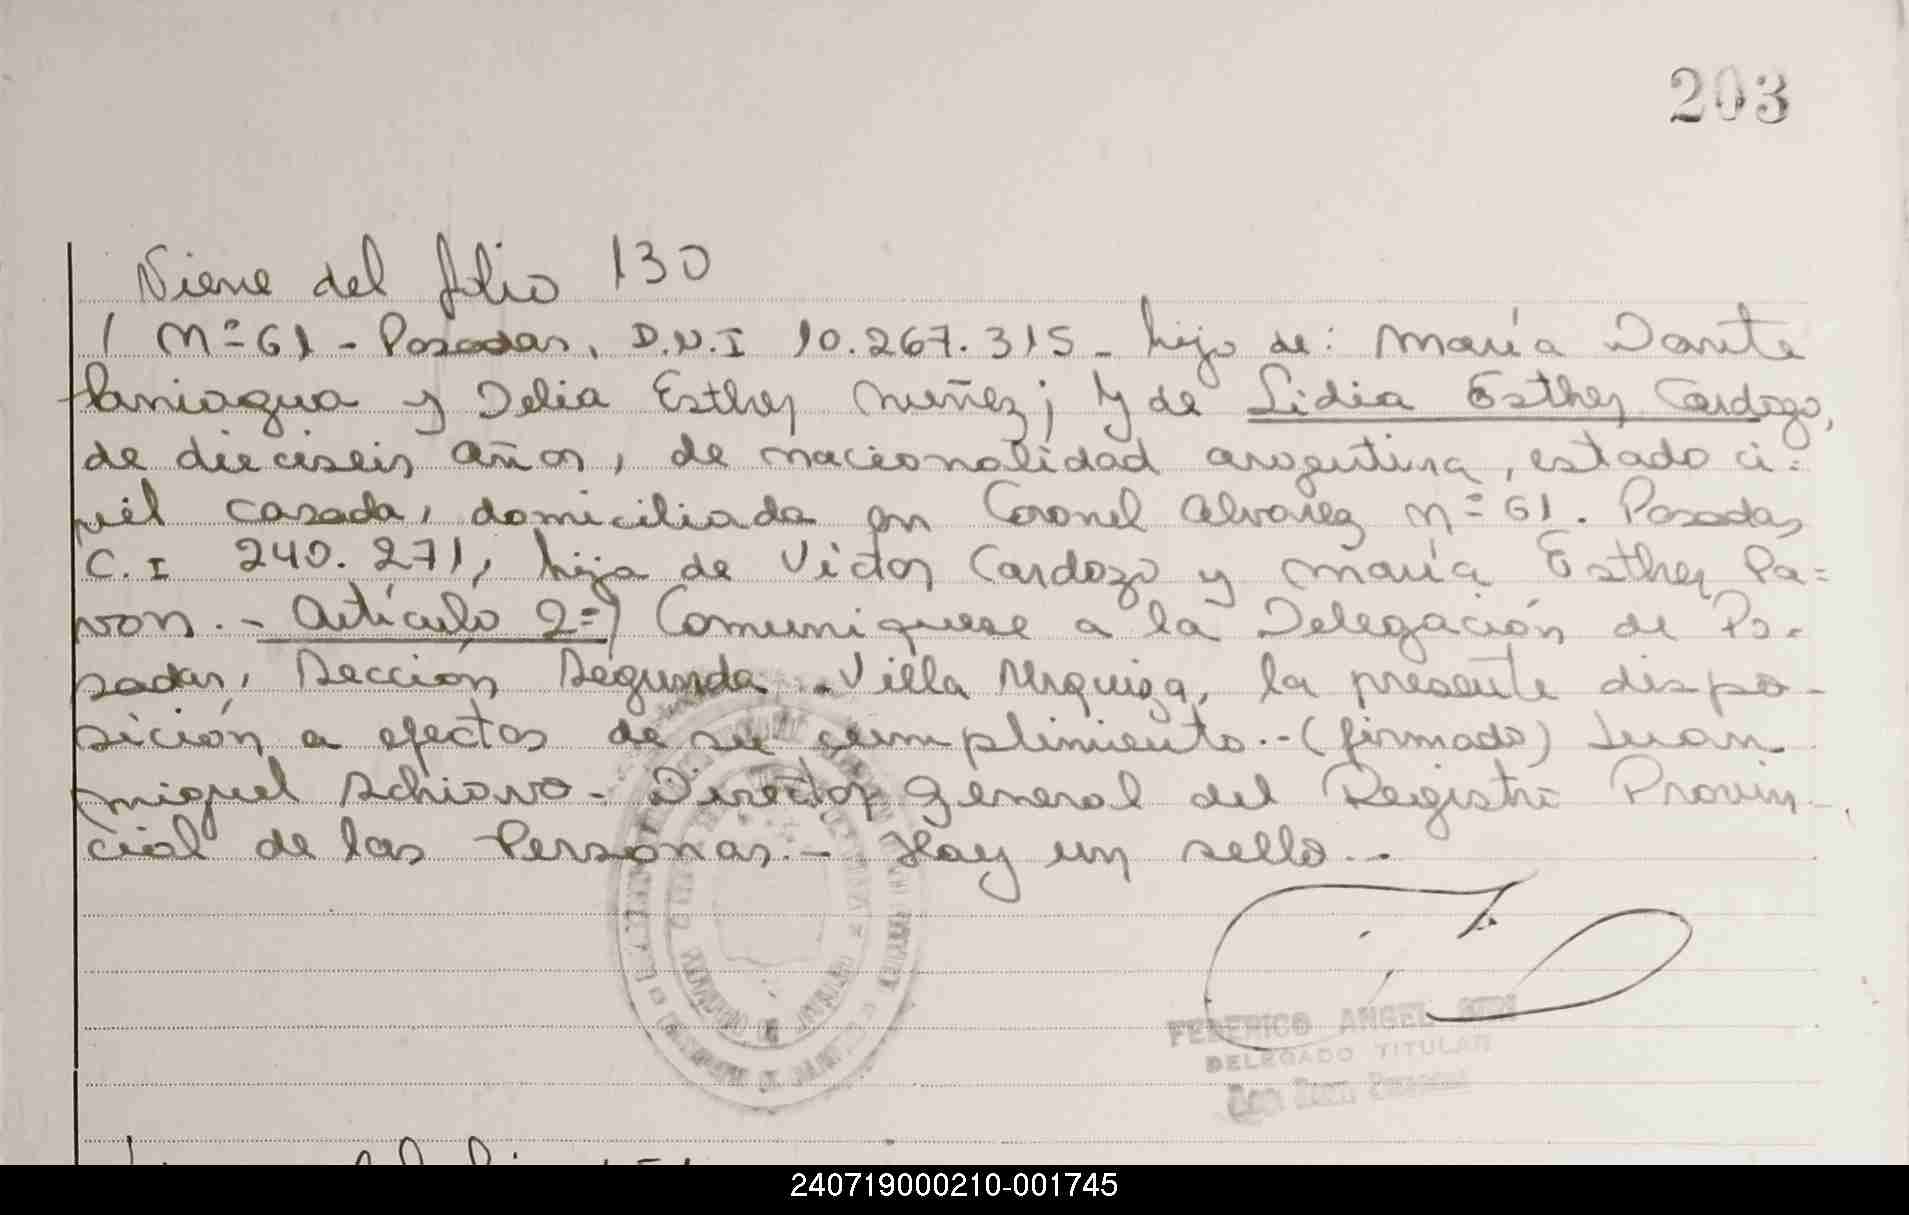 203
Viene del folio 130
/ Nº 61 - Posadas, D.N.I 10.267.315 - hijo de: María Dante
Paniagua y Delia Esther Nuñez; y de Lidia Esther Cardozo,
de dieciseis años, de nacionalidad argentina, estado ci=
vil casada, domiciliada en Coronel Alvarez nº 61. Posadas
C.I 240.271, hija de Victor Cardozo y María Esther Pa=
von. - Artículo 2º) Comuniquese a la Delegación de Po-
sadas, Sección Segunda - Villa Urquiza, la presente dispo-
sición a efectos de su cumplimiento.-(firmado) Juan
Miguel Schiavo - Director General del Registro Provin-
cial de las Personas.- Hay un sello.-
FEDERICO ANGEL
DELEGADO TITULAR
240719000210-001745